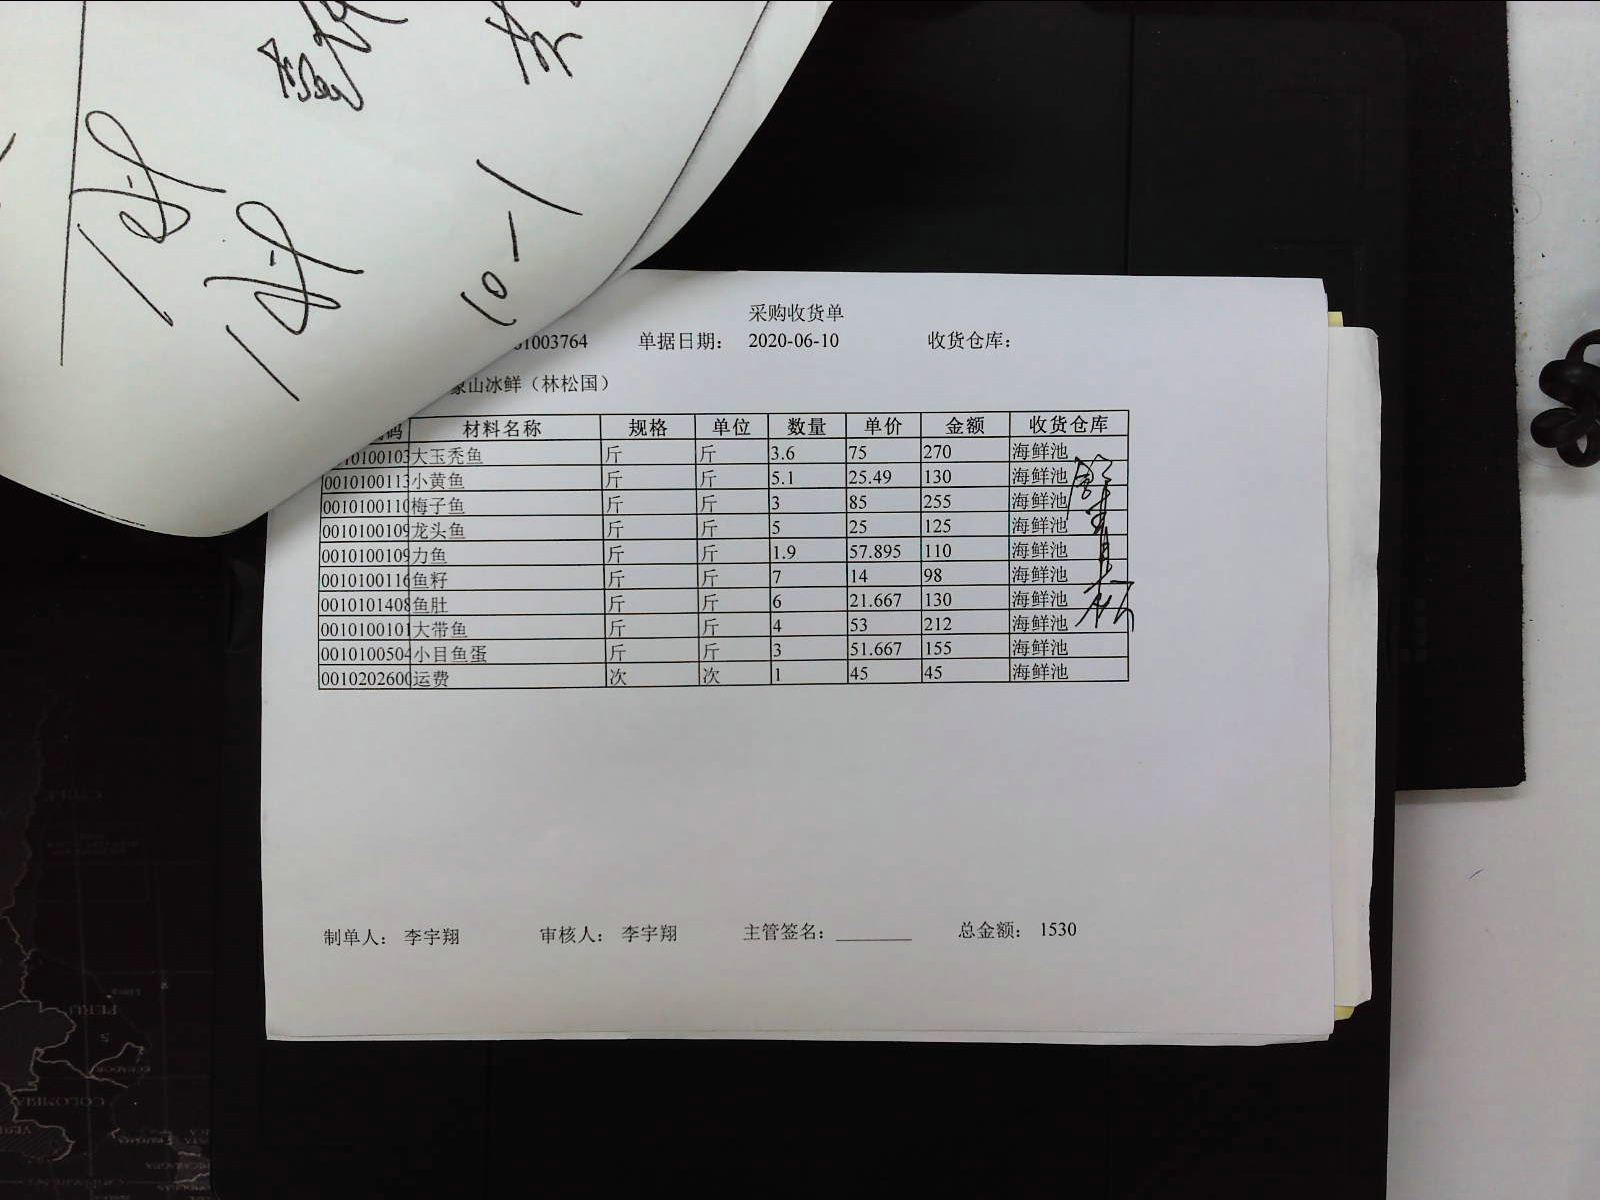 10-1
采购收货单
61003764 单据日期： 2020-06-10 收货仓库：
象山冰鲜（林松国）
码 材料名称 规格 单位 数量 单价 金额 收货仓库
0010100103 大玉秃鱼 斤 斤 3.6 75 270 海鲜池
0010100113 小黄鱼 斤 斤 5.1 25.49 130 海鲜池
0010100110 梅子鱼 斤 斤 3 85 255 海鲜池
0010100109 龙头鱼 斤 斤 5 25 125 海鲜池
0010100109 力鱼 斤 斤 1.9 57.895 110 海鲜池
0010100116 鱼籽 斤 斤 7 14 98 海鲜池
0010101408 鱼肚 斤 斤 6 21.667 130 海鲜池
0010100101 大带鱼 斤 斤 4 53 212 海鲜池
0010100504 小目鱼蛋 斤 斤 3 51.667 155 海鲜池
0010202600 运费 次 次 1 45 45 海鲜池
制单人： 李宇翔 审核人： 李宇翔 主管签名： 总金额： 1530